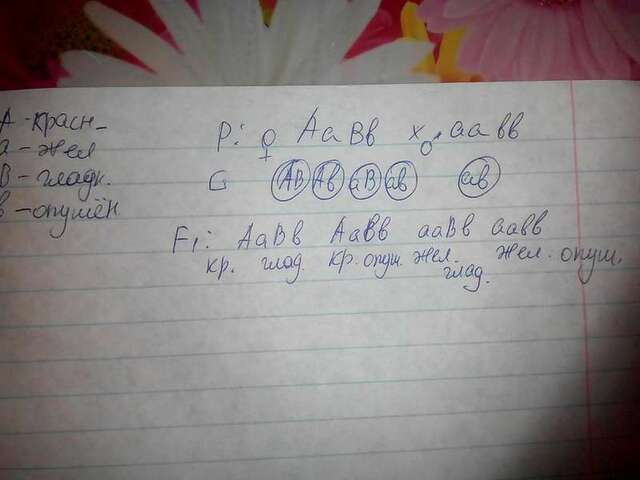 А - красн
а - жел
В - гладк.
в - опушён
P: ♀ АаВв х ♂ аавв
G АВ Ав аВ ав ав
F1: АаВв Аавв ааВв аавв
кр. глад. кр. опуш. жел. глад. жел. опуш.